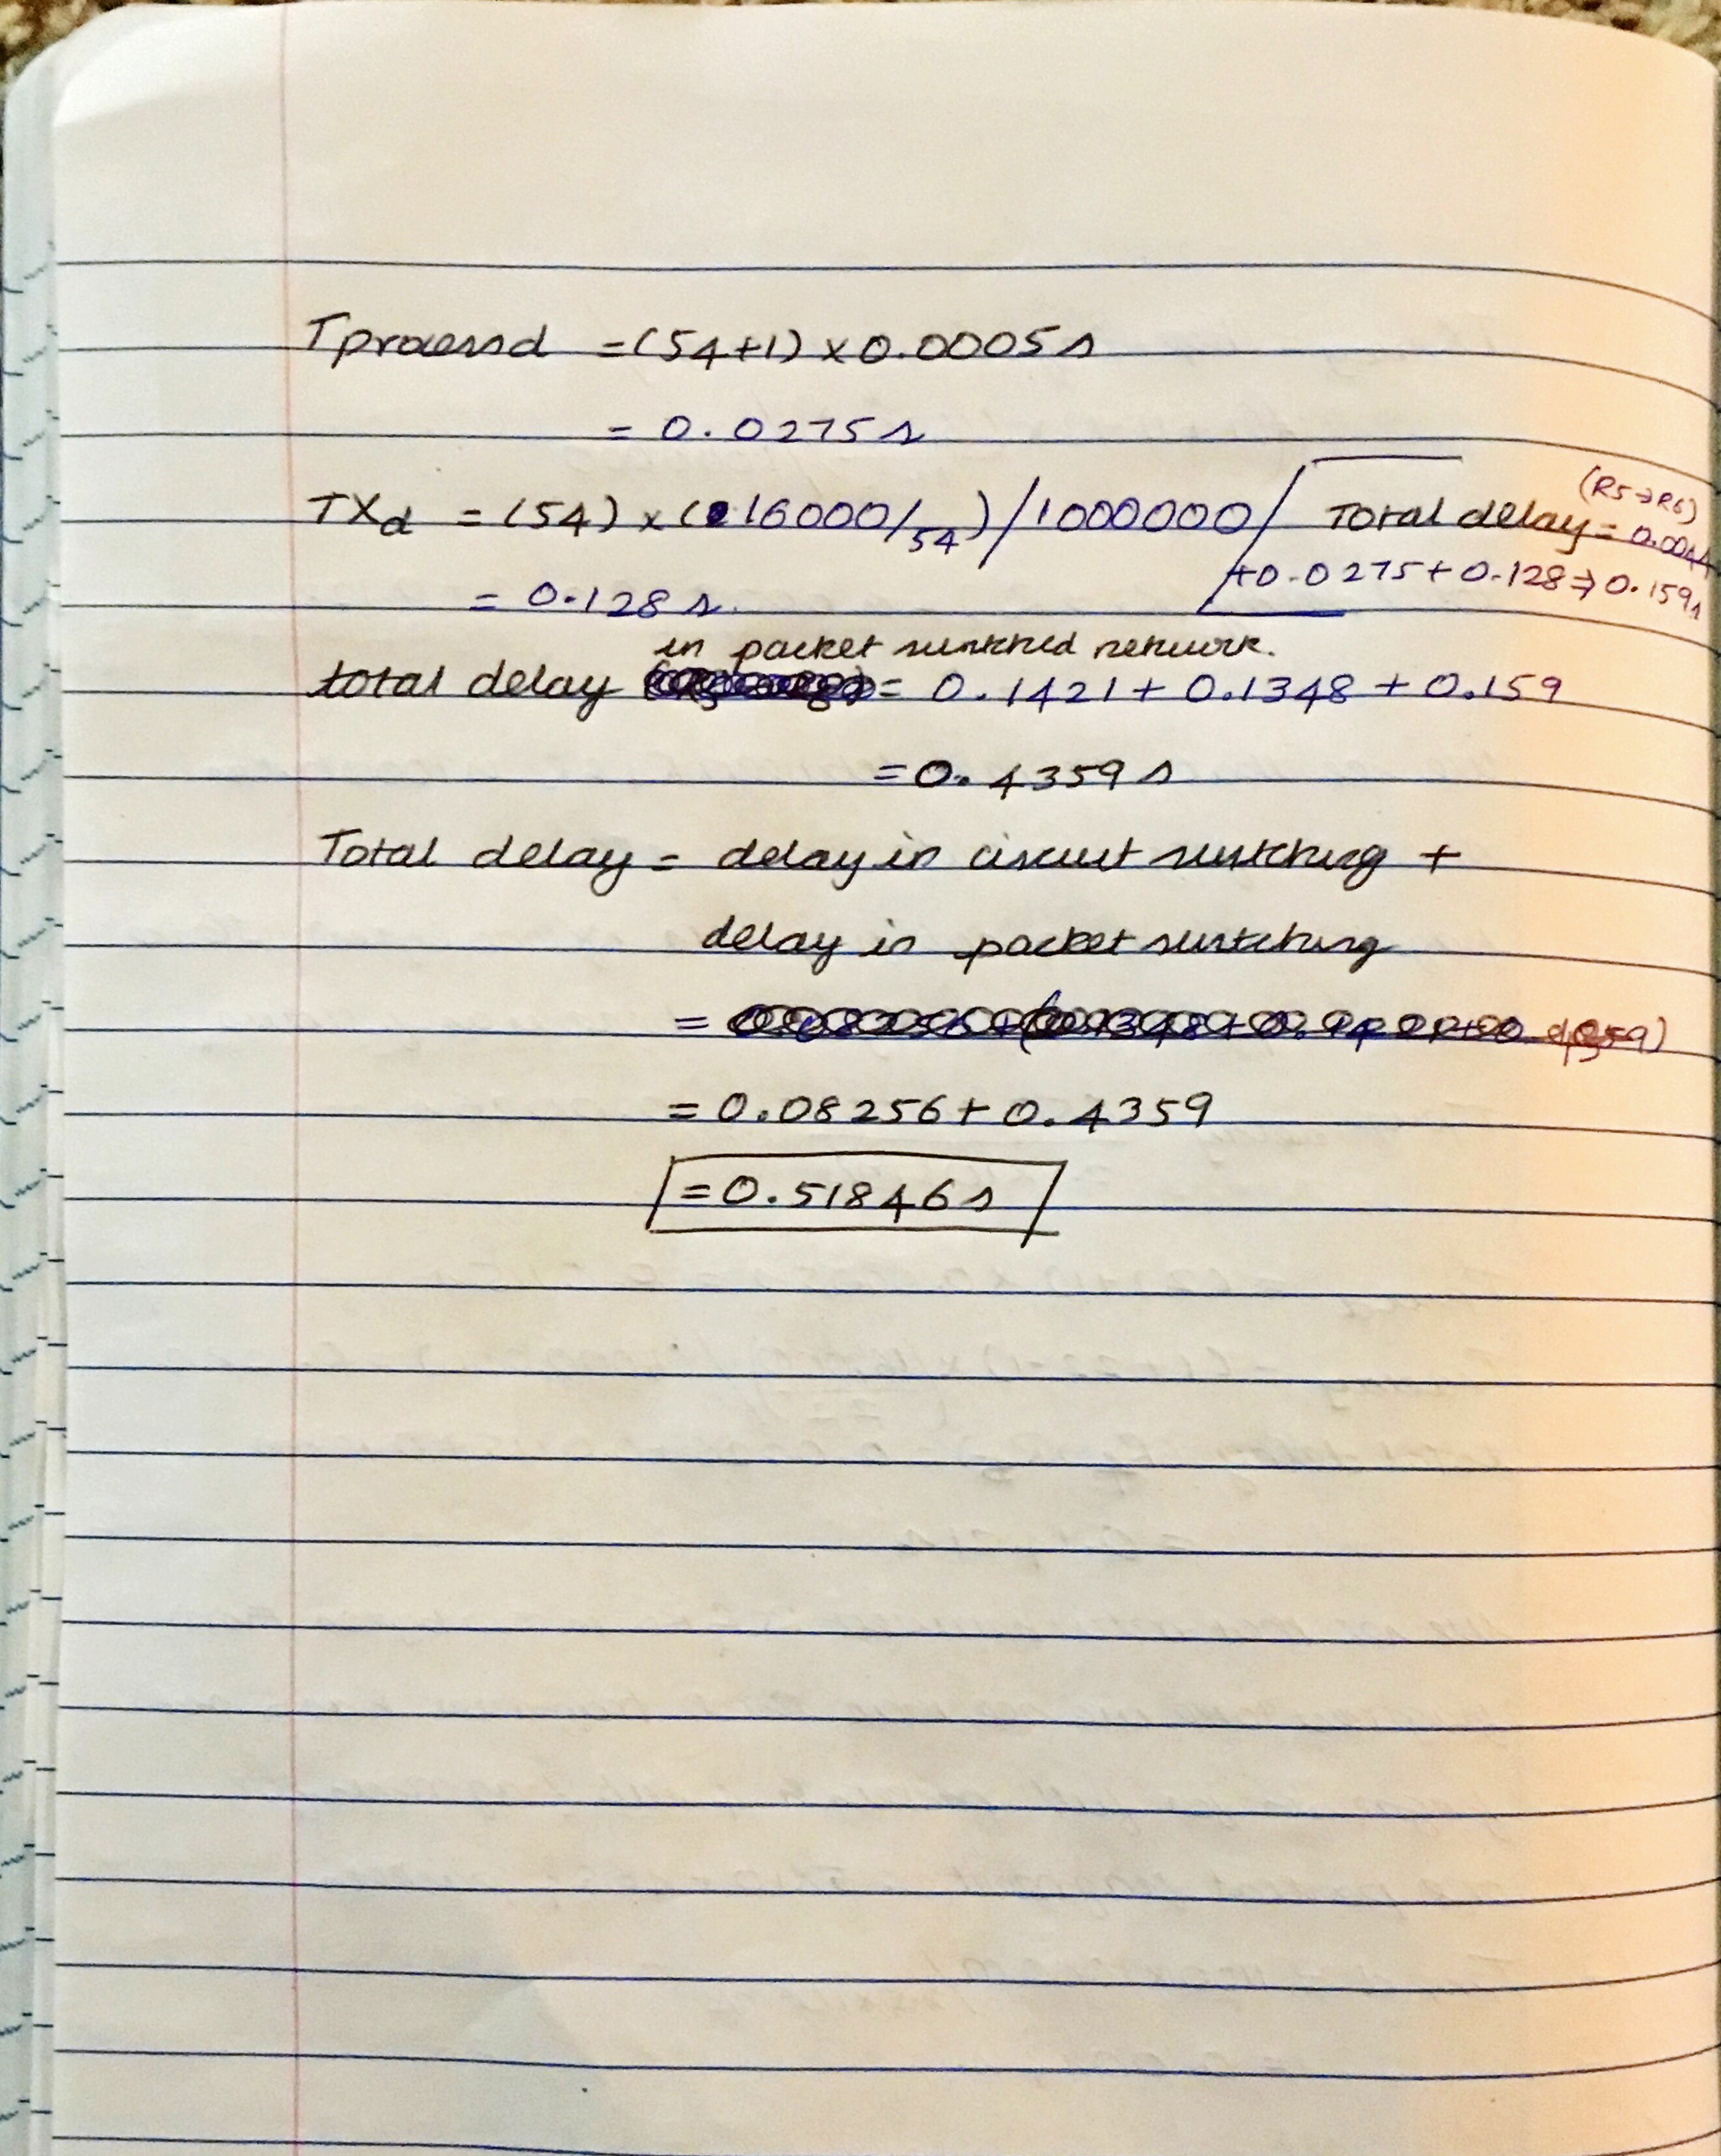 Tprocessd = (54+1) × 0.0005 s
= 0.0275 s
TXd = (54) × (16000/54)/1000000
= 0.128 s.
Total delay (R5→R6) = 0.0044
+0.0275+0.128 ⇒ 0.159s
in packet switched network.
total delay = 0.1421 + 0.1348 + 0.159
= 0.4359 s
Total delay = delay in circuit switching +
delay in packet switching
= 0.08256 + 0.4359
= 0.51846 s